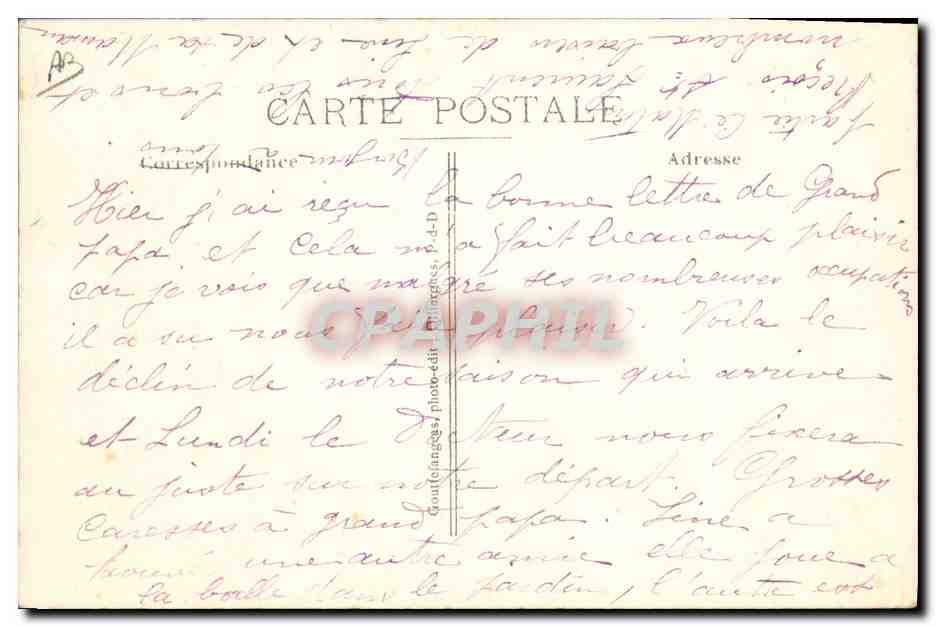 AB
CARTE POSTALE
Correspondance
Adresse
Hier j'ai reçu la bonne lettre de Grand
papa et cela m'a fait beaucoup plaisir
car je vois que malgré ses nombreuses occupations
il a su nous faire plaisir. Voila le
déclin de notre saison qui arrive
et Lundi le Docteur nous fixera
au juste sur notre départ. Grosses
Caresses à grand papa. Line a
trouvé une autre amie elle joue a
la balle dans le jardin, l'autre est
partie ce matin
Reçois et bons et
nombreux baisers de Line et de ta Maman
à tous
Gouttefangeas, photo-édit
P-d-D
CPAPHIL